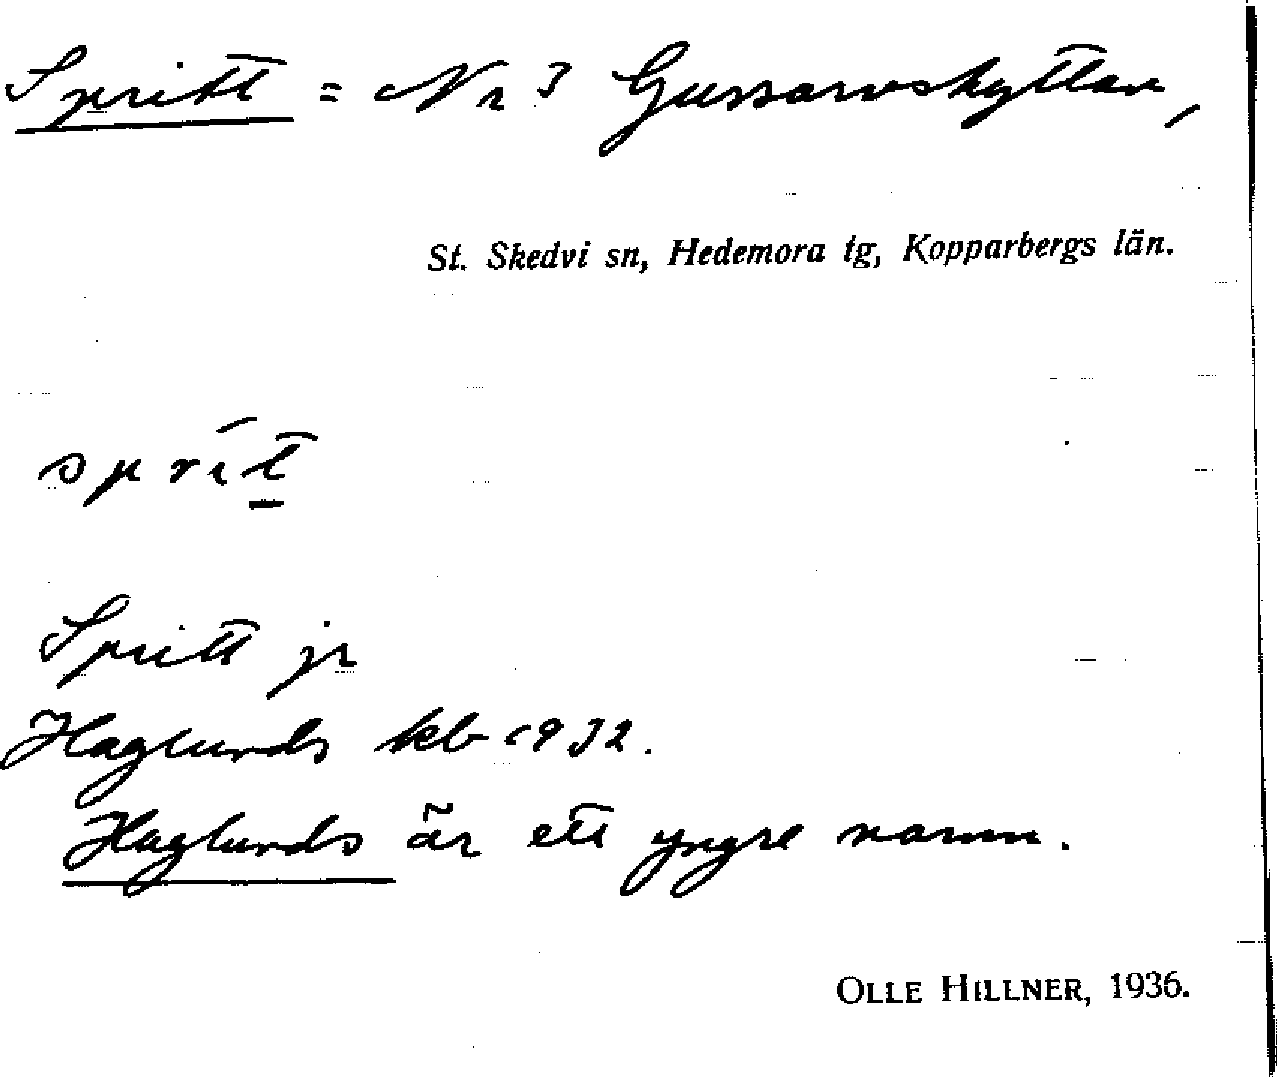 Spritt = Nr 3 Gussarvshyttan,
St. Skedvi sn, Hedemora tg, Kopparbergs län.
sprít
Spritt jr
Haglunds kb 1932.
Haglunds är ett yngre namn.
OLLE HILLNER, 1936.